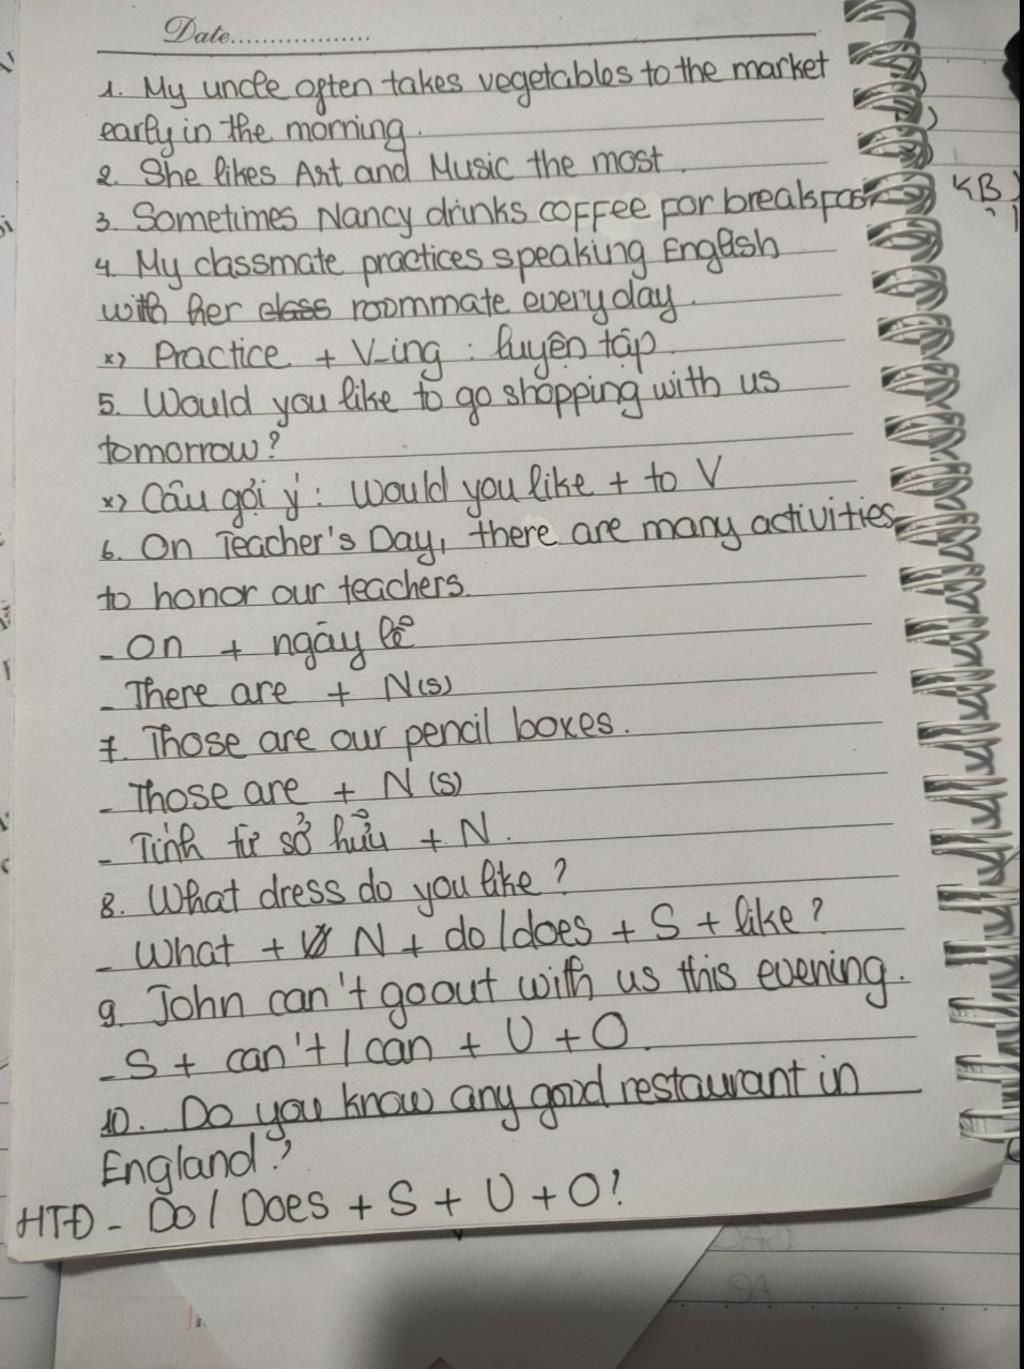 Date..................
1. My uncle often takes vegetables to the market
early in the morning.
2. She likes Art and Music the most.
3. Sometimes Nancy drinks coffee for breakfast
4. My classmate practices speaking English
with her class roommate everyday.
*) Practice + V-ing : luyện tập.
5. Would you like to go shopping with us
tomorrow?
*) Câu gợi ý : Would you like + to V
6. On Teacher's Day, there are many activities
to honor our teachers.
- On + ngày lễ
- There are + N(s)
7. Those are our pencil boxes.
- Those are + N (s)
- Tính từ sở hữu + N.
8. What dress do you like ?
- What + N + do / does + S + like ?
9. John can't go out with us this evening.
- S + can't / can + V + O.
10. Do you know any good restaurant in
England ?
HTĐ - Do / Does + S + V + O?
KB